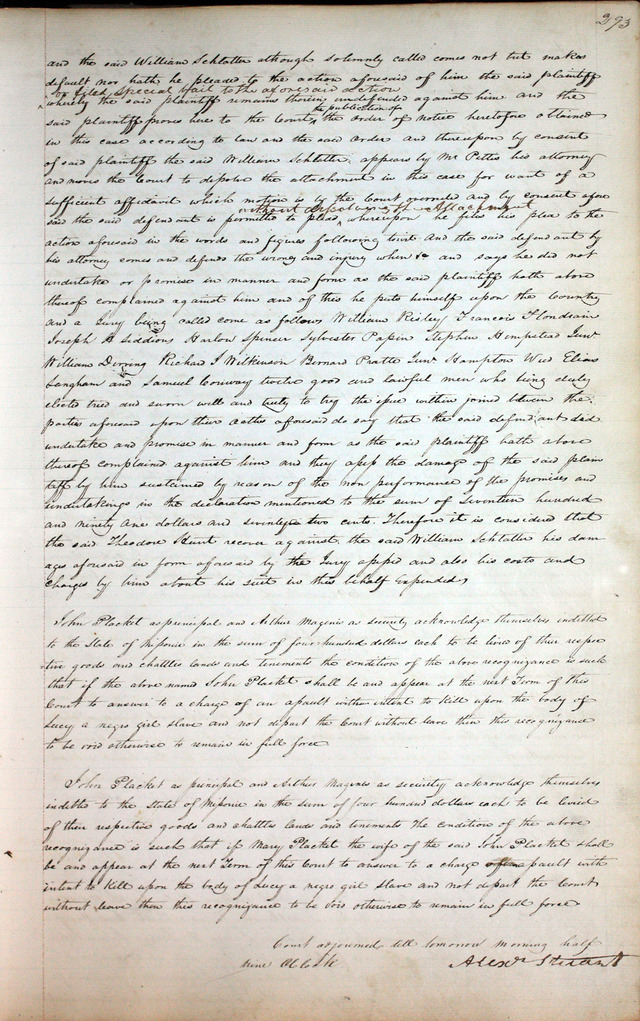 393
and the said William Schlatter although solemnly called comes not but makes
default nor hath he pleaded to the action aforesaid of him the said plaintiff
or filed special bail to the aforesaid action
whereby the said plaintiff remains therein undefended against him and the
the publication of
said plaintiff proves here to the Court the order of notice heretofore obtained
in this case according to law and the said order and thereupon by consent
of said plaintiff the said William Schlatter, appears by Mr Pettis his attorney
and moves the Court to dissolve the attachment in this case for want of a
sufficient affidavit which motion is by the Court overruled and by consent afore
without dissolving the Attachment
said the said defendant is permitted to plead whereupon he files his plea to the
action aforesaid in the words and figures following towit And the said defendant by
his attorney comes and defends the wrong and injury when &c and says he did not
undertake or promise in manner and form as the said plaintiff hath above
thereof complained against him and of this he puts himself upon the Country
and a Jury being called come as follows William Risley Francois
Joseph A Siddions Harlow Spencer Sylvester Papin Stephen Hempstead Junr
William Richard J Wilkinson Bernard Pratte Junr Hampton Elias
Langham and Samuel Conway twelve good and lawful men who being duly
elected tried and sworn well and truly to try the issue within joined between the
parties aforesaid upon their oaths aforesaid do say that the said defendant did
undertake and promise in manner and form as the said plaintiff hath above
thereof complained against him and they assess the damage of the said plain
tiff by him sustained by reason of the non performance of the promises and
undertakings in the declaration mentioned to the sum of Seventeen hundred
and ninety one dollars and seventy two cents. Therefore it is considered that
the said Theodore Hunt recover against the said William Schlatter his dam
ages aforesaid in form aforesaid by the Jury assessed and also his costs and
charges by him about his suit in this behalf expended
John Placket as principal and Arthur Magenis as security acknowledge themselves indebted
to the State of Missouri in the sum of four hundred dollars each to be levied of their respec
tive goods and chattles lands and tenements the condition of the above recognizance is such
that if the above named John Placket shall be and appear at the next Term of this
Court to answer to a charge of an assault with intent to kill upon the body of
Lucy a negro girl slave and not depart the Court without leave then this recognizance
to be void otherwise to remain in full force
John Placket as principal and Arthur Magenis as security acknowledge themselves
indebted to the State of Missouri in the sum of four hundred dollars each to be levied
of their respective goods and chattles lands and tenements The condition of the above
recognizance is such that if Mary Placket the wife of the said John Placket shall
be and appear at the next Term of this Court to answer to a charge of an assault with
intent to kill upon the body of Lucy a negro girl slave and not depart the Court
without leave then this recognizance to be void otherwise to remain in full force
Court adjourned till tomorrow morning half
nine OClock
Alexr Stuart